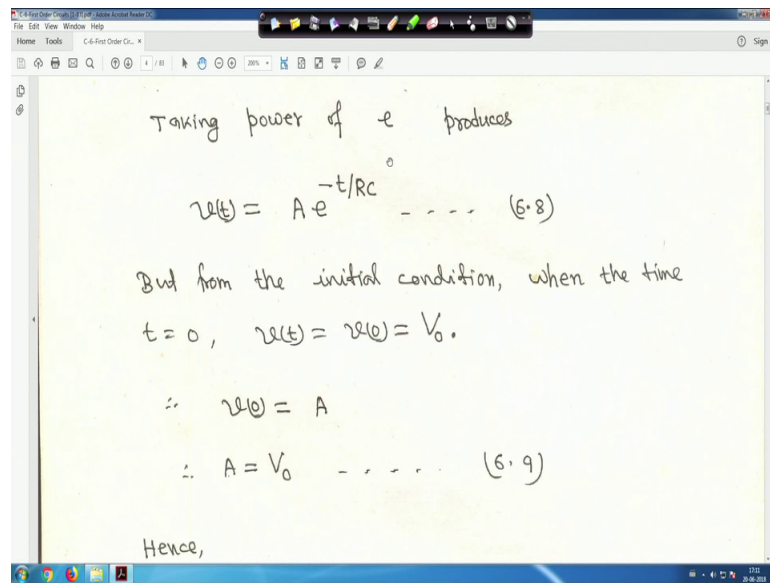 C-6-First Order Circuits [1-83].pdf - Adobe Acrobat Reader DC
File Edit View Window Help
Home Tools C-6-First Order Cir... × Sign
4 / 83 200%
Taking power of e produces
v(t) = A e^{-t/RC} ---- (6.8)
But from the initial condition, when the time
t = 0, v(t) = v(0) = V₀.
∴ v(0) = A
∴ A = V₀ ----- (6.9)
Hence,
17:11
20-06-2018